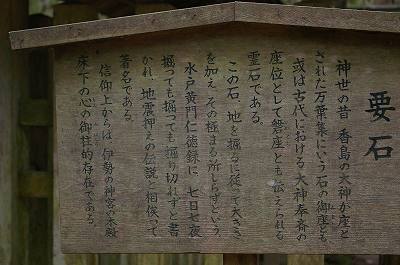 要石
神世の昔 香島の大神が座と
された万葉集にいう石の御座とも
或は古代における大神奉斎の
座位として磐座とも伝えられる
霊石である。
この石、地を掘るに従って大きさ
を加え その極まる所しらずという
水戸黄門仁徳録に 七日七夜
掘っても掘っても掘り切れずと書
かれ、地震押えの伝説と相俟って
著名である。
信仰上からは 伊勢の神宮の本殿
床下の心の御柱的存在である。